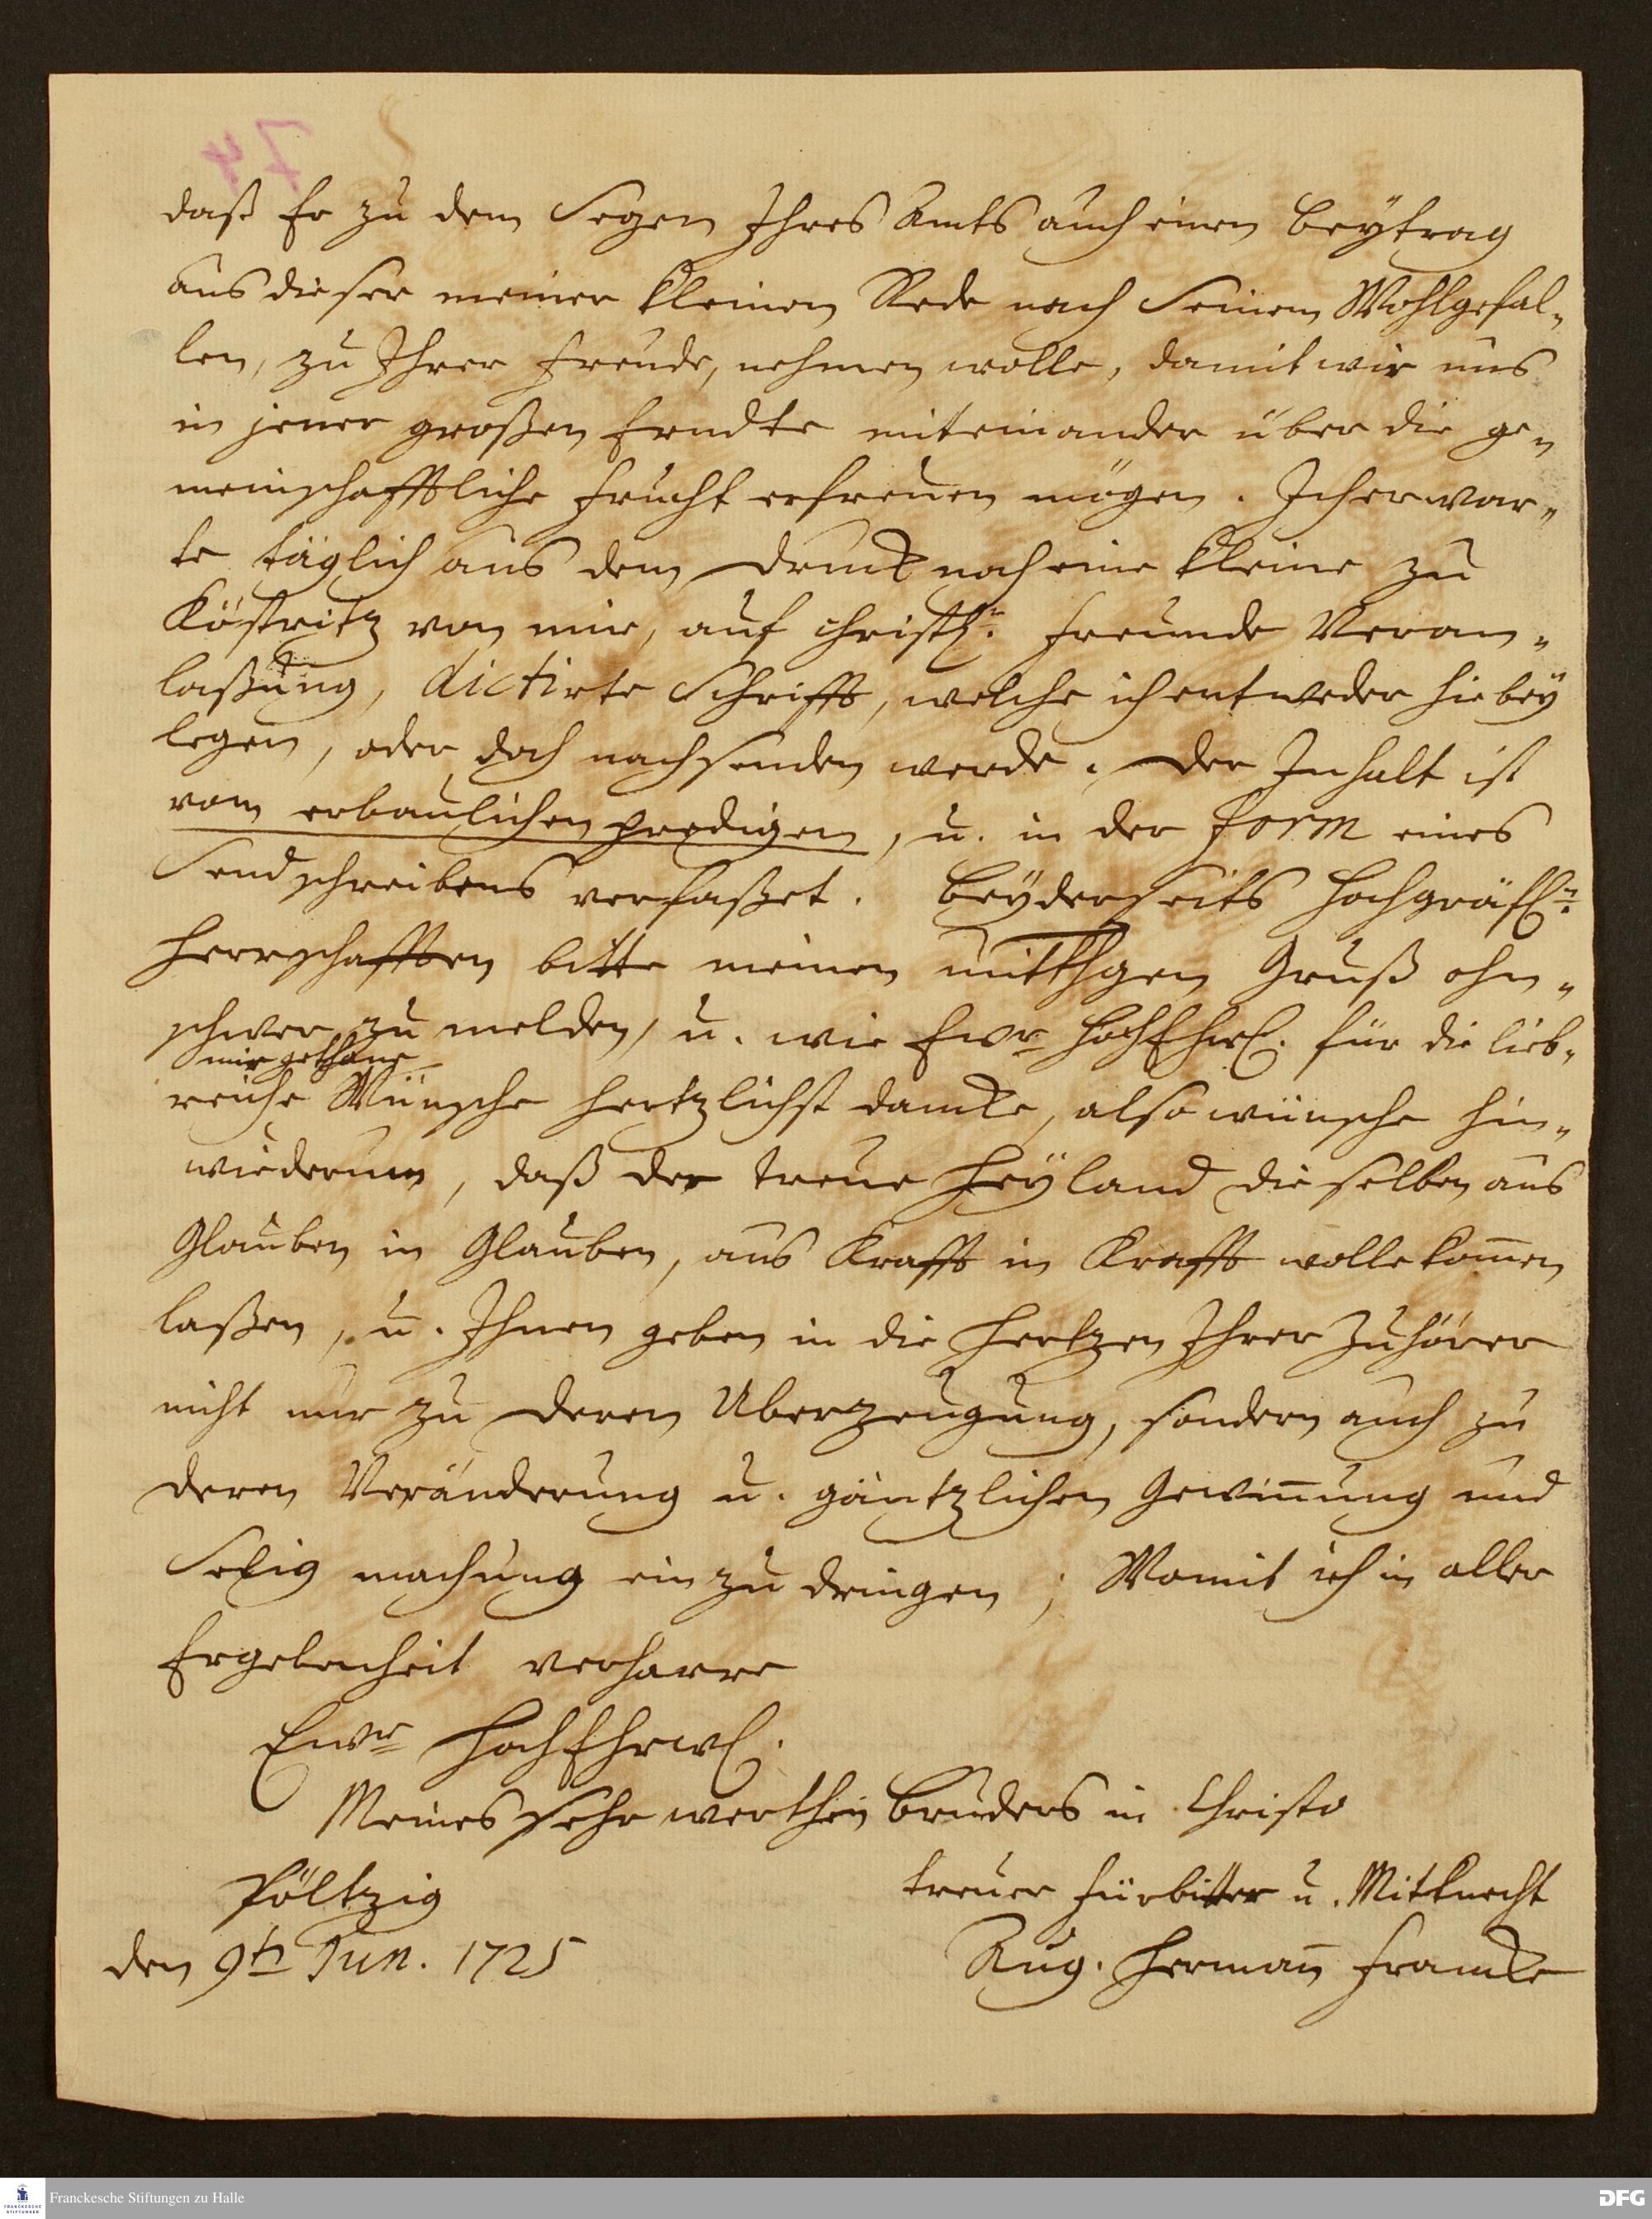 74
daß Er zu dem Segen Ihres Amts auch einen Beytrag
aus dieser meiner kleinen Rede nach Seinem Wohlgefal-
len, zu Ihrer Freude, nehmen wolle, damit wir uns
in jener großen Erndte miteinander über die ge-
meinschafftliche Frucht erfreuen mögen. Ich erwar-
te täglich aus dem Druck noch eine kleine zu
Köstritz von mir, auf christl. Freunde Veran-
laßung, dictirte Schrifft, welche ich entweder hiebey
legen, oder doch nachsenden werde. Der Inhalt ist
vom erbaulichen predigen, u. in der form eines
Sendschreibens verfaßet. Beyderseits Hochgräfl.
Herrschafften bitte meinen Gruß ohn-
schwer zu melden, u. wie Ewr HochEhrw. für die lieb-
mir gethane
reiche Wünsche hertzlichst dancke, also wünsche hin-
wiederum, daß der treue Heyland dieselben aus
Glauben in Glauben, aus Krafft in Krafft wolle kom̄en
laßen, u. Ihnen geben in die Hertzen Ihrer Zuhörer
nicht nur zu deren Uberzeugung, sondern auch zu
deren Veränderung u. gäntzlichen Gewin̄ung und
Selig machung ein zu dringen; Womit ich in aller
Ergebenheit verharre
Ewr HochEhrw.
Meines sehr werthen Bruders in Christo
treuer Fürbitter u. Mitknecht
Aug. Herman̄ Francke
Pöltzig
den 9tn Jun. 1725
Franckesche Stiftungen zu Halle
FRANCKESCHE
STIFTUNGEN
DFG